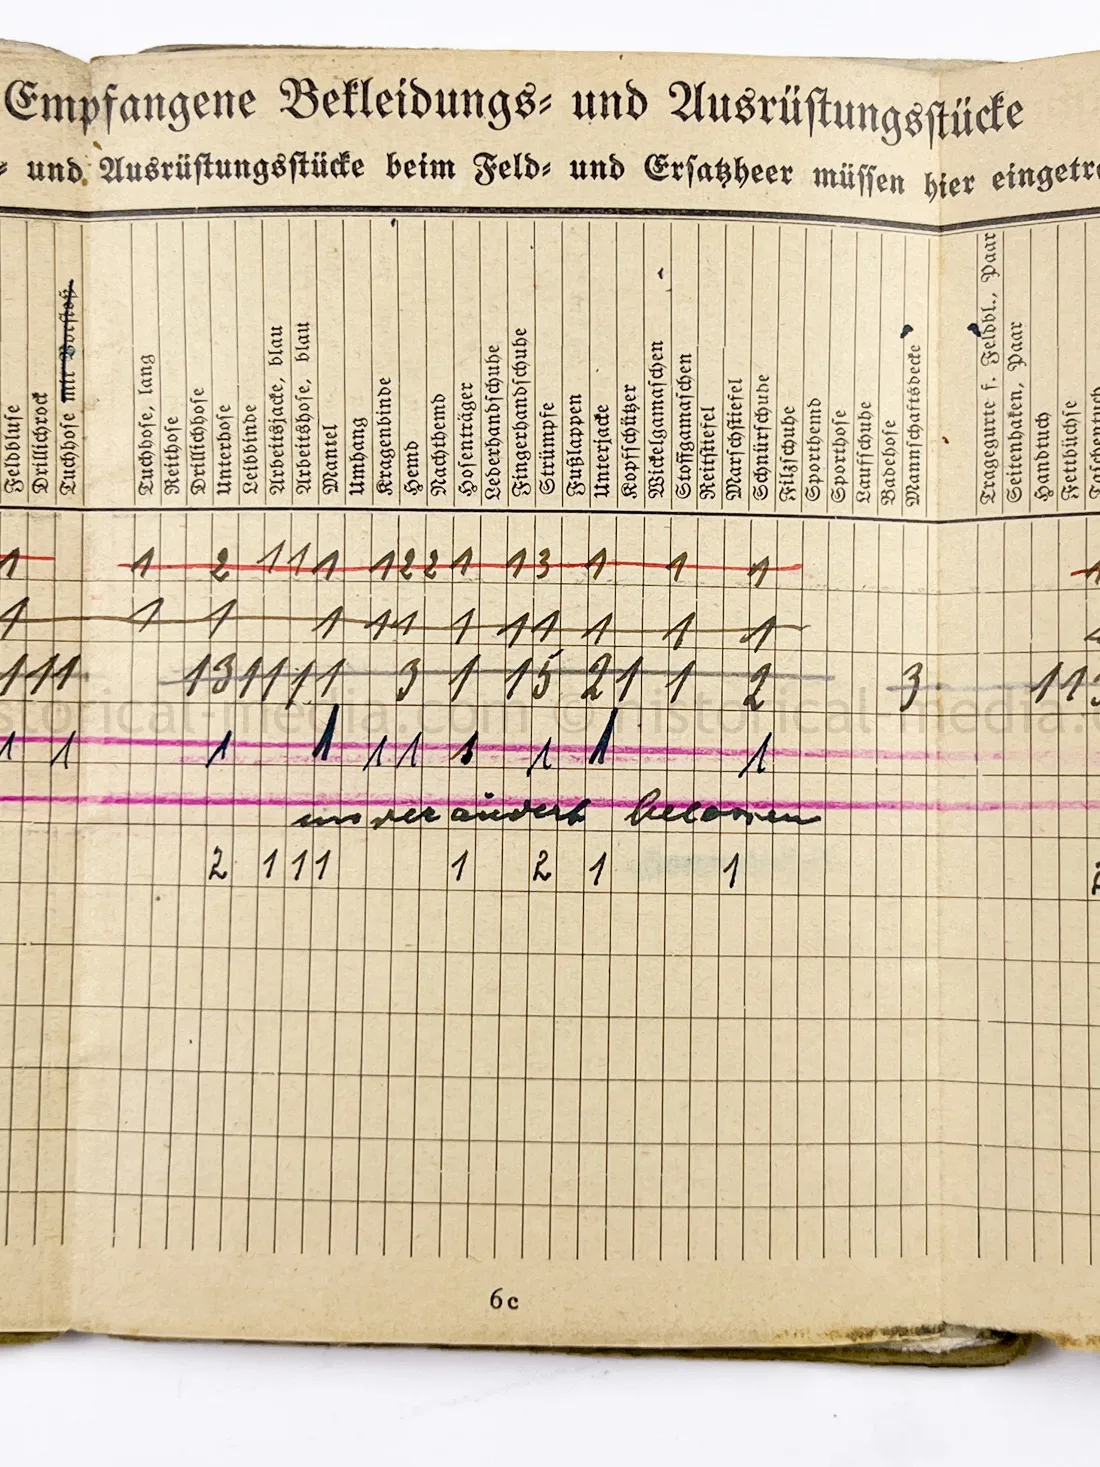 Empfangene Bekleidungs- und Ausrüstungsstücke
- und Ausrüstungsstücke beim Feld- und Ersatzheer müssen hier eingetra
Feldbluse
Drillichrock
Tuchhose mit Vorstoß
Tuchhose, lang
Reithose
Drillichhose
Unterhose
Leibbinde
Arbeitsjacke, blau
Arbeitshose, blau
Mantel
Umhang
Kragenbinde
Hemd
Nachthemd
Hosenträger
Lederhandschuhe
Fingerhandschuhe
Strümpfe
Fußlappen
Unterjacke
Kopfschützer
Wickelgamaschen
Stoffgamaschen
Reitstiefel
Marschstiefel
Schnürschuhe
Filzschuhe
Sporthemd
Sporthose
Laufschuhe
Badehose
Mannschaftsdecke
Tragegurte f. Feldbl., Paar
Seitenhaken, Paar
Handtuch
Fettbüchse
Taschentuch
1 1 2 1 1 1 1 2 2 1 1 3 1 1 1 1
1 1 1 1 1 1 1 1 1 1 1 1
1 1 1 1 3 1 1 1 1 1 3 1 1 5 2 1 1 2 3 1 1 3
historical-media.com © historical-media.
1 1 1 1 1 1 1 1 1 1
unverändert belassen
2 1 1 1 1 2 1 1
6c